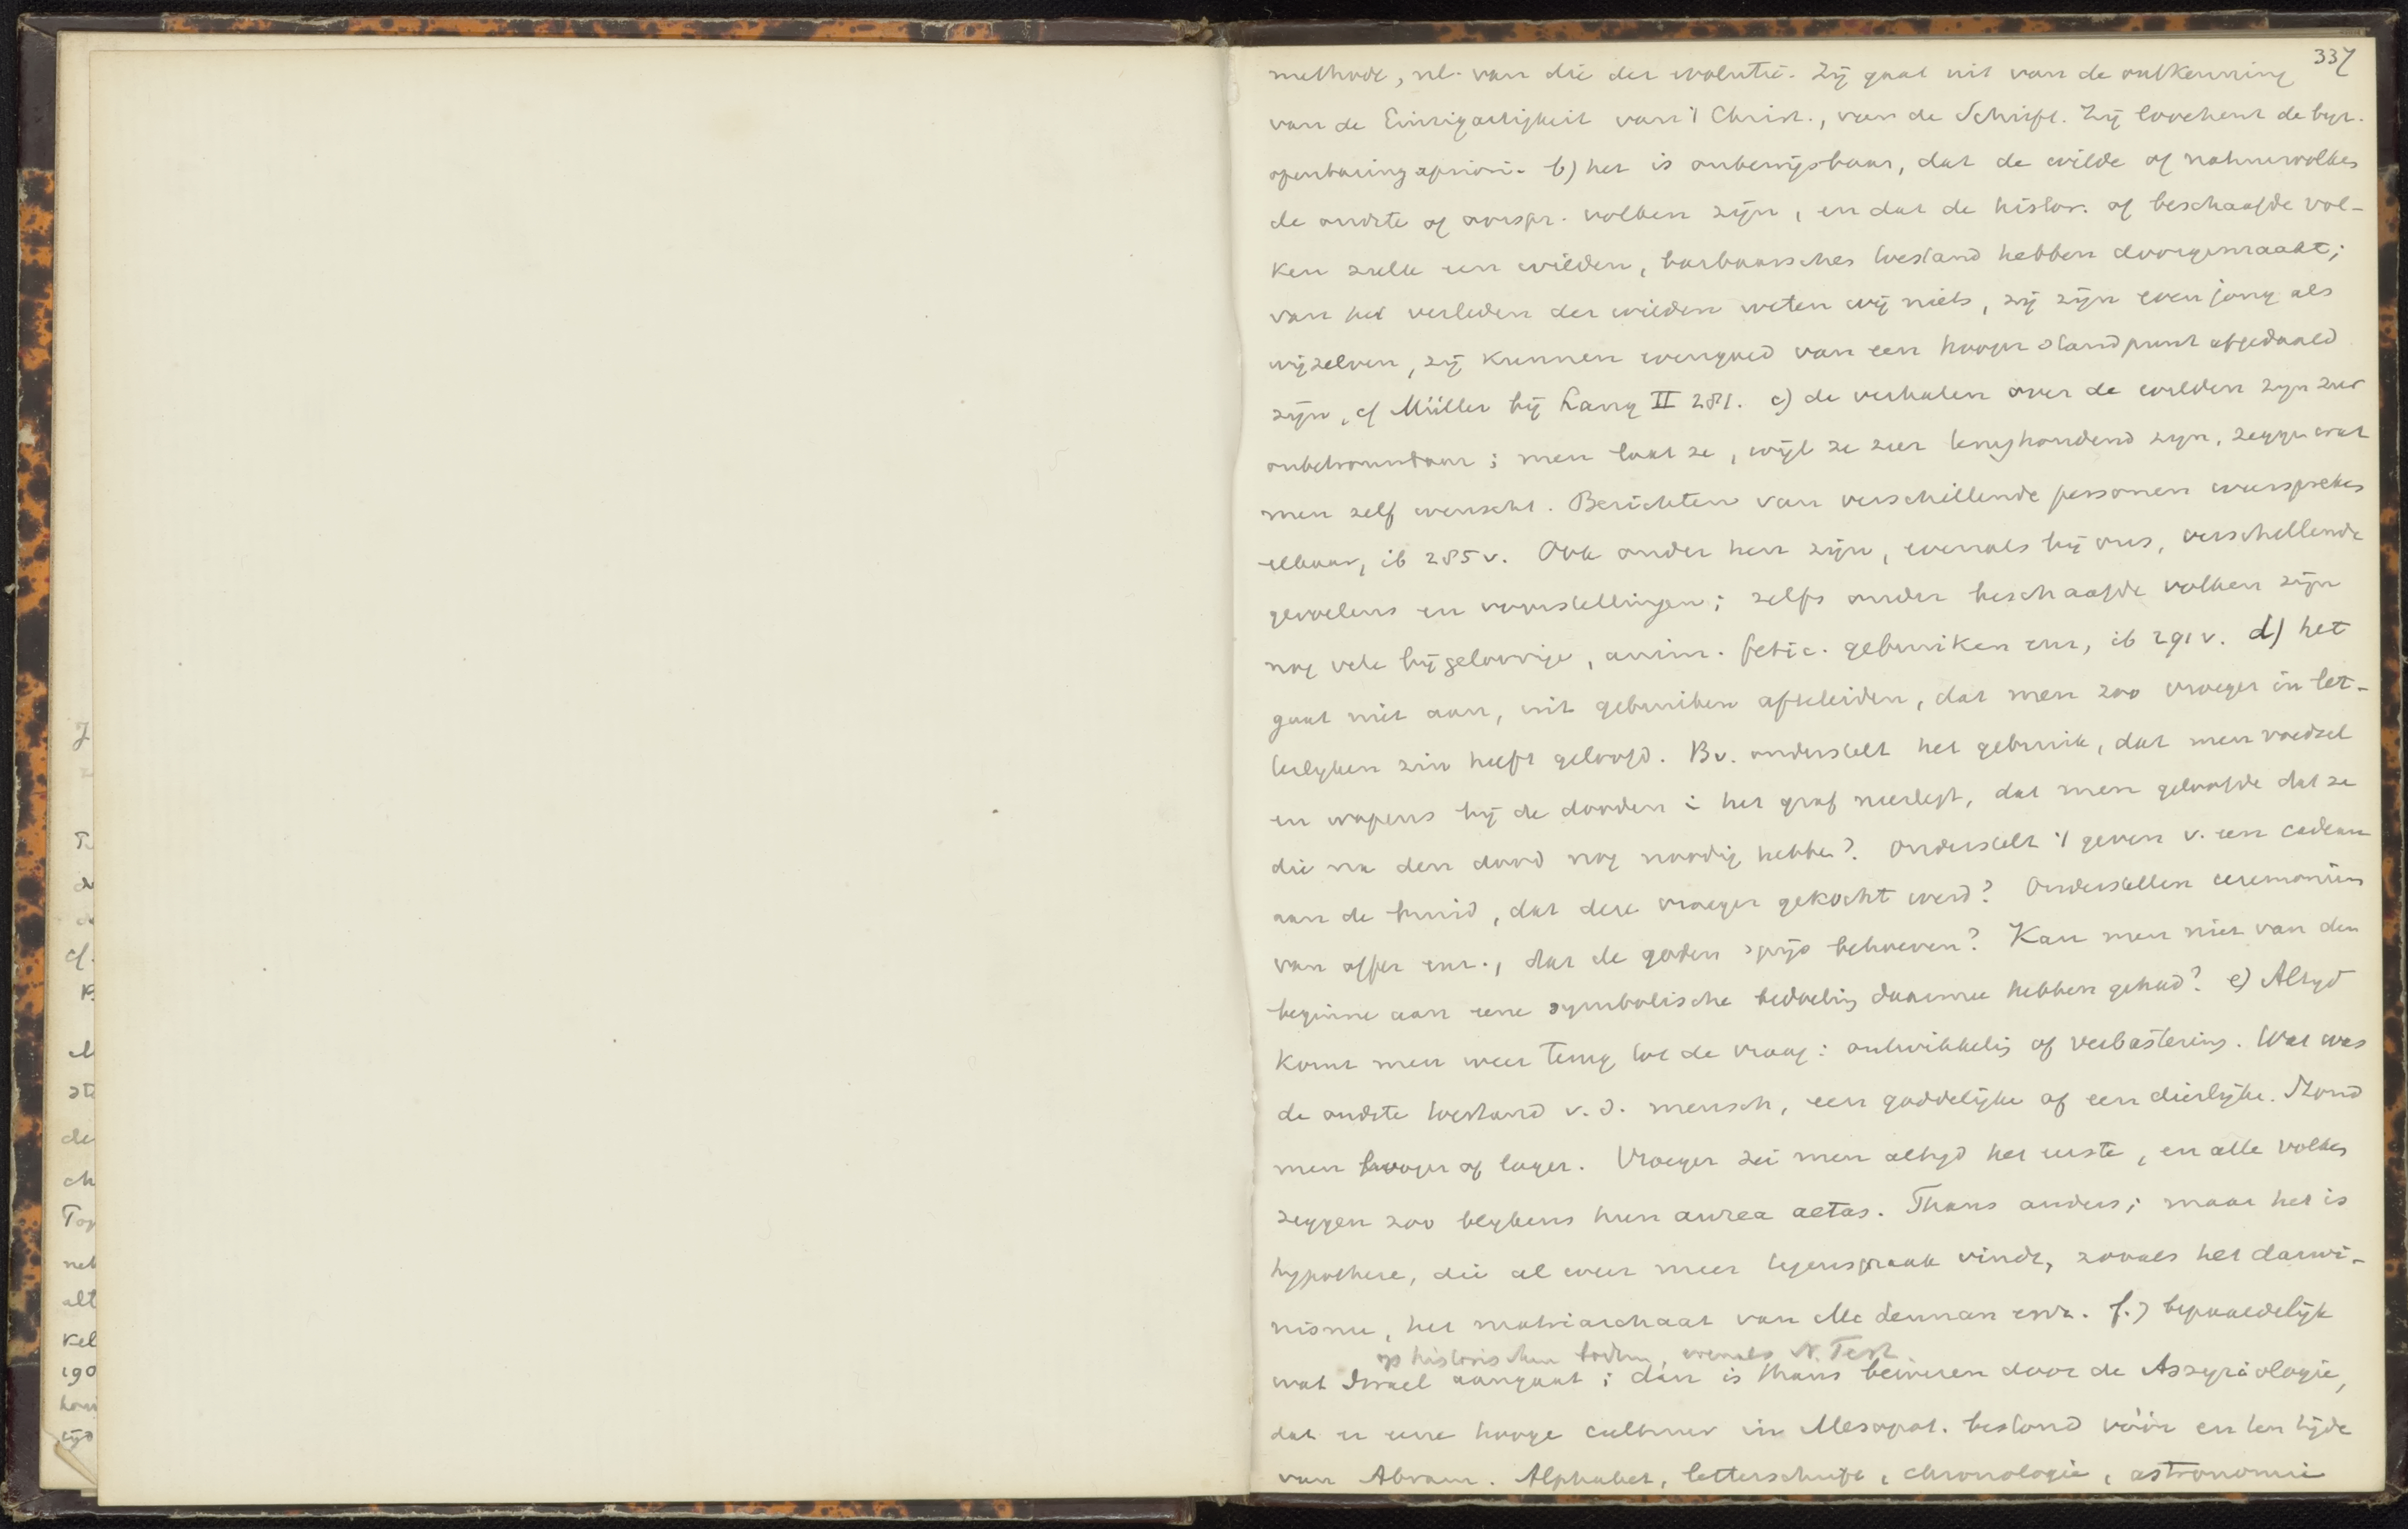 337
methode, nl. van die der evolutie. Zij gaat uit van de ontkenning
van de Einzigartigkeit van 't Christ., van de Schrift. Zij loochent de byz.
openbaring apriori. b) het is onbewijsbaar, dat de wilde of natuurvolken
de oudste of oorspr. volken zijn, en dat de histor. of beschaafde vol-
ken zulk een wilden, barbaarschen toestand hebben doorgemaakt;
van het verleden der wilden weten wij niets, zij zijn even jong als
wijzelven, zij kunnen evengoed van een hooger standpunt afgedaald
zijn, cf Müller bij Lang II 281. c) de verhalen over de wilden zyn zeer
onbetrouwbaar; men laat ze, wijl ze zeer terughoudend zyn, zeggen wat
men zelf wenscht. Berichten van verschillende personen weerspreken
elkaar, ib 285 v. Ook onder hen zijn, evenals bij ons, verschillende
gevoelens en voorstellingen; zelfs onder beschaafde volken zijn
nog vele bijgeloovige, anim. fetic. gebruiken enz, ib 291 v. d) het
gaat niet aan, uit gebruiken afteleiden, dat men zoo vroeger in let-
terlyken zin heeft geloofd. Bv. onderstelt het gebruik, dat men voedsel
en wapens bij de dooden i het graf neerlegt, dat men geloofde dat ze
die na den dood nog noodig hebben? Onderstelt 't geven v. een cadeau
aan de bruid, dat deze vroeger gekocht werd? Onderstellen ceremoniën
van offer enz., dat de goden spijs behoeven? Kan men niet van den
beginne aan eene symbolische bedoeling daarmee hebben gehad? e) Altyd
komt men weer terug tot de vraag: ontwikkeling of verbastering. Wat was
de oudste toestand v. d. mensch, een goddelijke of een dierlijke. Stond
men hooger of lager. Vroeger zei men altyd het eerste, en alle volken
zeggen zoo blykens hun aurea aetas. Thans anders; maar het is
hypothese, die al weer meer tegenspraak vindt, zooals het darwi-
nisme, het matriarchaat van Mc Lennan enz. f.) bepaaldelijk
op historischen bodem, evenals N. Test.
wat Israel aangaat; dan is thans bewezen door de Assyriologie,
dat er eene hooge cultuur in Mesopot. bestond vóór en ten tijde
van Abram. Alphabet, letterschrift, chronologie, astronomie